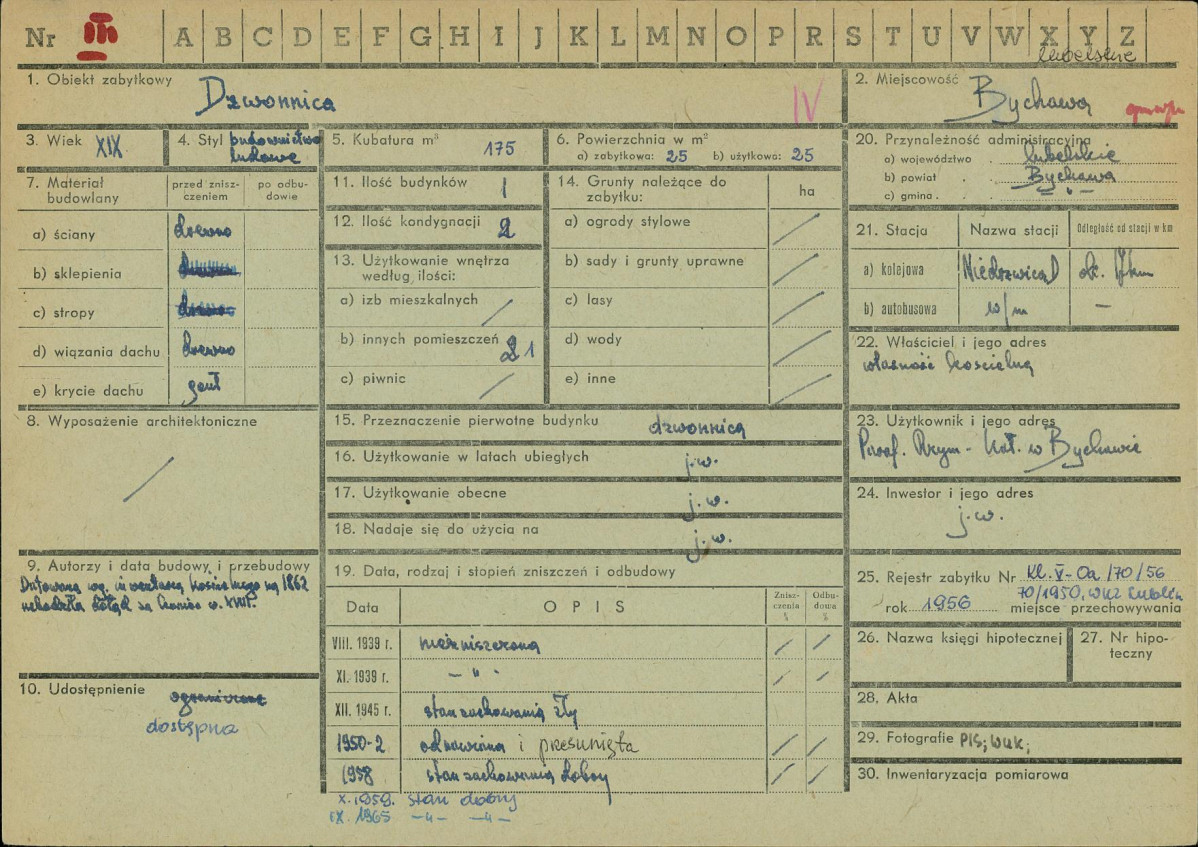 Nr III A B C D E F G H I J K L M N O P R S T U V W X Y Z
lubelskie
1. Obiekt zabytkowy Dzwonnica IV
2. Miejscowość Bychawa
3. Wiek XIX
4. Styl budownictwo ludowe
5. Kubatura m³ 175
6. Powierzchnia w m²
a) zabytkowa: 25 b) użytkowa: 25
7. Materiał budowlany
przed znisz-
czeniem
po odbu-
dowie
a) ściany drewno
b) sklepienia
c) stropy
d) wiązania dachu drewno
e) krycie dachu gont
8. Wyposażenie architektoniczne
9. Autorzy i data budowy i przebudowy
Datowana wg. inwentarza kościelnego na 1862
uchodziła dotąd za XVIII.
10. Udostępnienie ograniczone
dostępna
11. Ilość budynków 1
12. Ilość kondygnacji 2
13. Użytkowanie wnętrza
według ilości:
a) izb mieszkalnych
b) innych pomieszczeń 2 1
c) piwnic
14. Grunty należące do
zabytku:
ha
a) ogrody stylowe
b) sady i grunty uprawne
c) lasy
d) wody
e) inne
15. Przeznaczenie pierwotne budynku dzwonnica
16. Użytkowanie w latach ubiegłych j.w.
17. Użytkowanie obecne j.w.
18. Nadaje się do użycia na j.w.
19. Data, rodzaj i stopień zniszczeń i odbudowy
Data OPIS
Znisz-
czenia
%
Odbu-
dowa
%
VIII. 1939 r. niezniszczona
XI. 1939 r. — " -
XII. 1945 r. stan zachowania zły
1950-2 odnawiana i przesunięta
1958 stan zachowania dobry
X. 1959. stan dobry
IX. 1965 —"— —"—
20. Przynależność administracyjna
a) województwo lubelskie
b) powiat Bychawa
c) gmina — " —
21. Stacja Nazwa stacji Odległość od stacji w km
a) kolejowa Niedrzwica D ok. 17km
b) autobusowa w/m —
22. Właściciel i jego adres
własność kościelna
23. Użytkownik i jego adres
Paraf. Rzym - Kat. w Bychawie
24. Inwestor i jego adres
j.w.
25. Rejestr zabytku Nr Kl. V-0a/70/56
70/1950, WKZ Lublin
rok 1956 miejsce przechowywania
26. Nazwa księgi hipotecznej
27. Nr hipo-
teczny
28. Akta
29. Fotografie PIS; WUK;
30. Inwentaryzacja pomiarowa